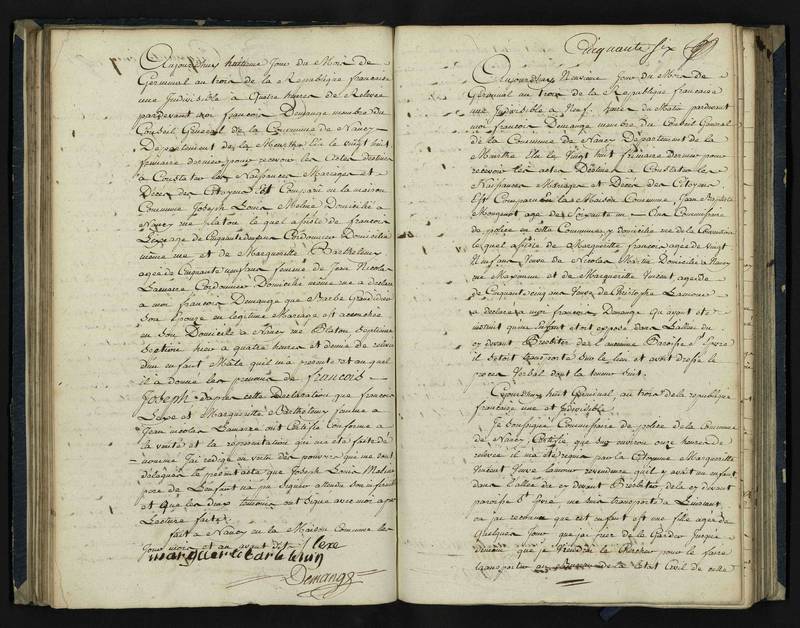 Aujourdhuy huitieme Jour du Mois de
Germinal au trois de la Republique francaise
une Indivisible à Quatre heures de Relevée
pardevant moi francois Demange membre du
Conseil General de la Commune de Nancy
Departement de la Meurthe Elu le vingt huit
frimaire dernier pour recevoir les Actes destinés
a Constater les Naissances Mariages et
Décès des Citoyens Est Comparu en la maison
Commune Joseph Louis Domicilié a
Nancy rue platon le quel assisté de francois
Lexe age de Cinquante Cordonnier Domicilié
meme rue et de Margueritte Barthelemy
agée de Cinquante un ans femme de Jean Nicolas
Cordonnier Domicilié meme rue a declaré
a moi francois Demange que Barbe
Son Epouse en legitime Mariage est accouchée
en son Domicile à Nancy rue Platon Septieme
Section hier a quatre heures et demie de relevée
dun enfant Mâle quil m'a presenté et au quel
il a donné les prenoms de francois
Joseph Dapres cette Declaration que francois
Lexe et Margueritte Barthelemy femme a
Jean nicolas ont Certifié Conforme a
la verité et la représentation qui ma eté faite du
nommé Jai redigé en vertu des pouvoirs qui me sont
delegués le présent acte que Joseph Louis
pere de Lenfant na pu Signer attendu son
et que les deux temoins ont Signé avec moi apres
Lecture faite
fait a Nancy en la Maison Commune les
Jour mois et an avant dits Lexe
marguerite bartelemy
Demange
Cinquante Six
Aujourdhuy Neuvieme Jour du Mois de
Germinal au trois de la Republique francaise
une Indivisible a Neuf heures du Matin pardevant
moi francois Demange membre du Conseil General
de la Commune de Nancy Departement de la
Meurthe Elu le Vingt huit frimaire dernier pour
recevoir les actes Destinés a Constater les
Naissances Mariages et Décès des Citoyens
Est Comparu En la Maison Commune, Jean Baptiste
age de Soixante un ans Commissaire
de police en cette Commune y domicilié rue de la
le quel assisté de Margueritte francois agée de vingt
ans Veuve de Nicolas Martin Domiciliée a Nancy
rue et de Margueritte Vincent agée de
de Cinquante cinq ans Veuve de Christophe Lamour
a declaré a moi francois Demange Qu ayant eté
instruit quun Enfant etoit exposé dans Lallée du
cy devant Presbitere de l'ancienne Paroisse St Epvre
il Setoit transporté sur le lieu et avoit dressé le
proces Verbal dont la teneur suit.
Cejourdhuy huit Germinal au trois de la republique
francaise une et Indivisible
Je Soussigné Commissaire de police de la Commune
de Nancy, Certifie, que Sur environ onze heures de
relevée il ma eté requis par la Citoyenne Margueritte
Vincent Veuve Lamour revendeuse quil y avait un enfant
dans Lallée du cy devant Presbitere de la cy devant
paroisse St Epvre me suis transporté a Linstant
ou jai reconnu que cet enfant est une fille agée de
quelques Jour que jai priée de la Garder Jusqua
demain que je viendrai la Chercher pour la faire
transporter au de la Etat Civil de cette